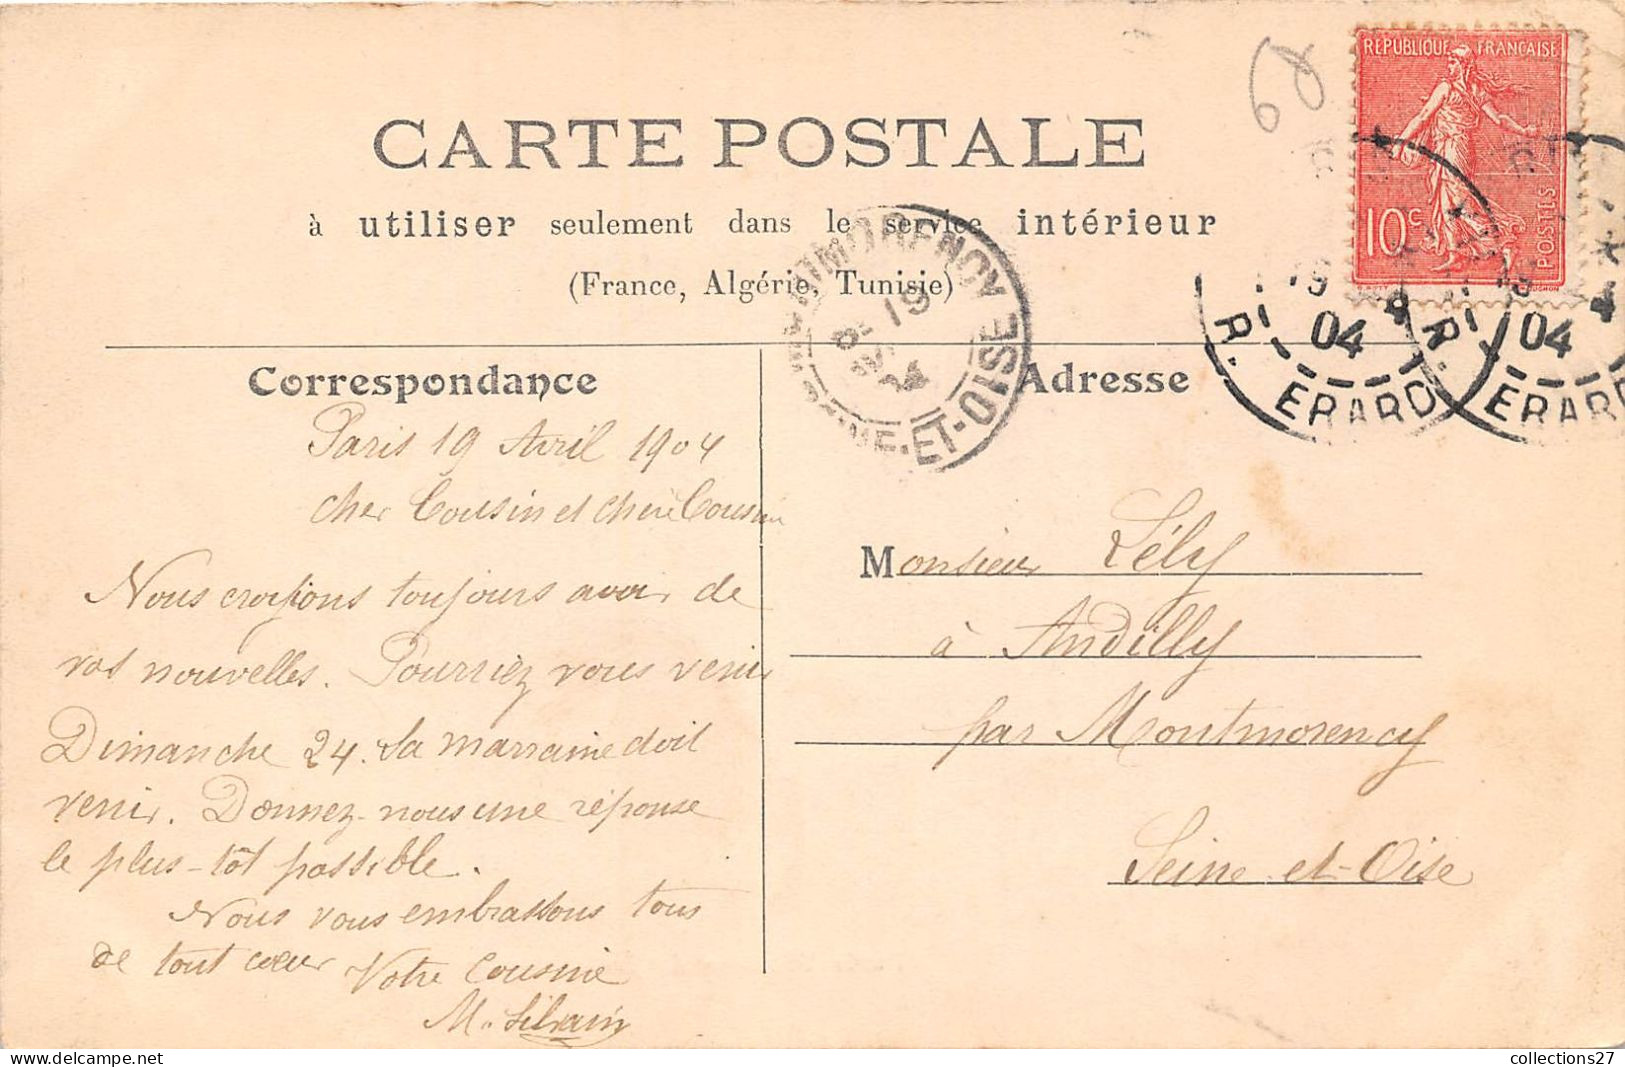 CARTE POSTALE
à utiliser seulement dans le service intérieur
(France, Algérie, Tunisie)
RÉPUBLIQUE FRANÇAISE
10c
POSTES
19
04
R. ERARD
19
04
R. ERARD
19
SEINE-ET-OISE
Correspondance
Adresse
Paris 19 Avril 1904
cher Cousin et chère Cousine
Nous croyions toujours avoir de
vos nouvelles. Pourriez vous venir
Dimanche 24. Sa marraine doit
venir. Donnez-nous une réponse
le plus-tôt possible.
Nous vous embrassons tous
de tout cœur Votre Cousine
M.
Monsieur Lély
à Andilly
par Montmorency
Seine-et-Oise
collections27